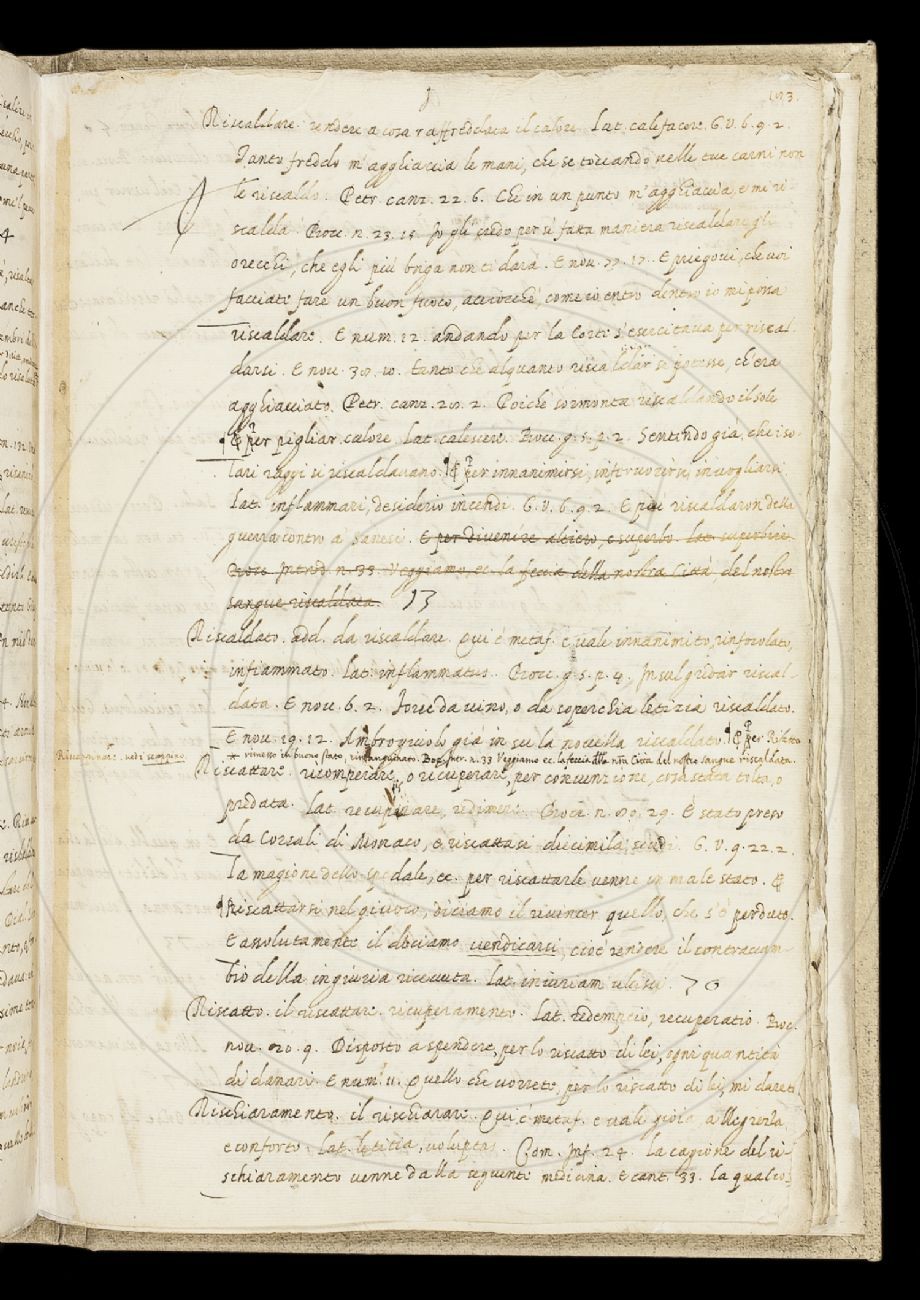 193.
Riscaldare. rendere a cosa raffreddata il calore. Lat. calefacere. G.V. 6. 9. 2.
Tanto freddo m'agghiaccia le mani, che se toccando nelle tue carni non
le riscaldo. Petr. canz. 22. 6. Che in un punto m'agghiaccia e mi ri-
scalda. Bocc. n. 23. 15. Io gli credo per sì fatta maniera riscaldare gli
orecchi, che egli più briga non ti darà. E nou. 77. 17. E priegoui, che uoi
facciate fare un buon fuoco, acciocchè, come io entro dentro io mi possa
riscaldare. E num. 12. andando per la Corte s'esercitaua per riscal-
darsi. E nou. tanto che alquanto riscaldar si potesse, ch'era
agghiacciato. Petr. canz. 2. Poichè sormonta riscaldando il sole
¶ E per pigliar calore. Lat. calescere. Bocc. g. 5. p. 2. Sentendo già, che i so-
lari raggi si riscaldauano. ¶ E per innanimirsi, inferuorirsi, inuogliarsi.
Lat. inflammari, desiderio incendi. G.V. 6. 9. 2. E più riscaldaron della
guerra contro a Sanesi. E per diuenire altiero, e superbo. Lat. superbire.
Bocc. n. 33. Veggiamo, ec. la feccia della nostra Città del nostro
sangue riscaldata. 13
Riscaldato. add. da riscaldare. Qui è metaf. e uale innanimito, infocolato,
infiammato. Lat. inflammatus. Bocc. g. 5. p. 4. In sul gridar riscal-
data. E nou. 6. 2. Forse da uino, o da soperchia letizia riscaldato.
E nou. 19. 12. Ambrogiuolo già in su la nouella riscaldato. ¶ E per Rifatto
rimesso in buono stato, rinsanguinato. n. 33 Veggiamo ec. la feccia della nra Città del nostro sangue riscaldata.
uedi scempino.
Riscattare. ricomperare, o ricuperare per conuenzione, cosa stata tolta, o
predata. Lat. recuperare, redimere. Bocc. n. 29. È stato preso
da Corsali di Monaco, e riscattasi diecimila scudi. G. V. 9. 22. 2.
La magione dello spedale, ec. per riscattarle uenne in male stato. E
¶ Riscattarsi nel giuoco, diciamo il riuincer quello, che s'è perduto.
E assolutamente il diciamo uendicarsi, cioè rendere il contraccam-
bio della ingiuria riceuuta. Lat. iniuriam ulcisci. 70
Riscatto. il riscattare. ricuperamento. Lat. redemptio, recuperatio. Bocc.
nou. 20. 9. Disposto a spendere, per lo riscatto di lei, ogni quantità
di danari. E num. 11. Quello che uorrete per lo riscatto di lei, mi darete
Rischiaramento. il rischiarare. Qui è metaf. e uale gioia, allegrezza,
e conforto. Lat. letitia, uoluptas. Com. Inf. 24. La cagione del ri-
schiaramento uenne dalla seguente medicina. E cant. 33. la qual co-